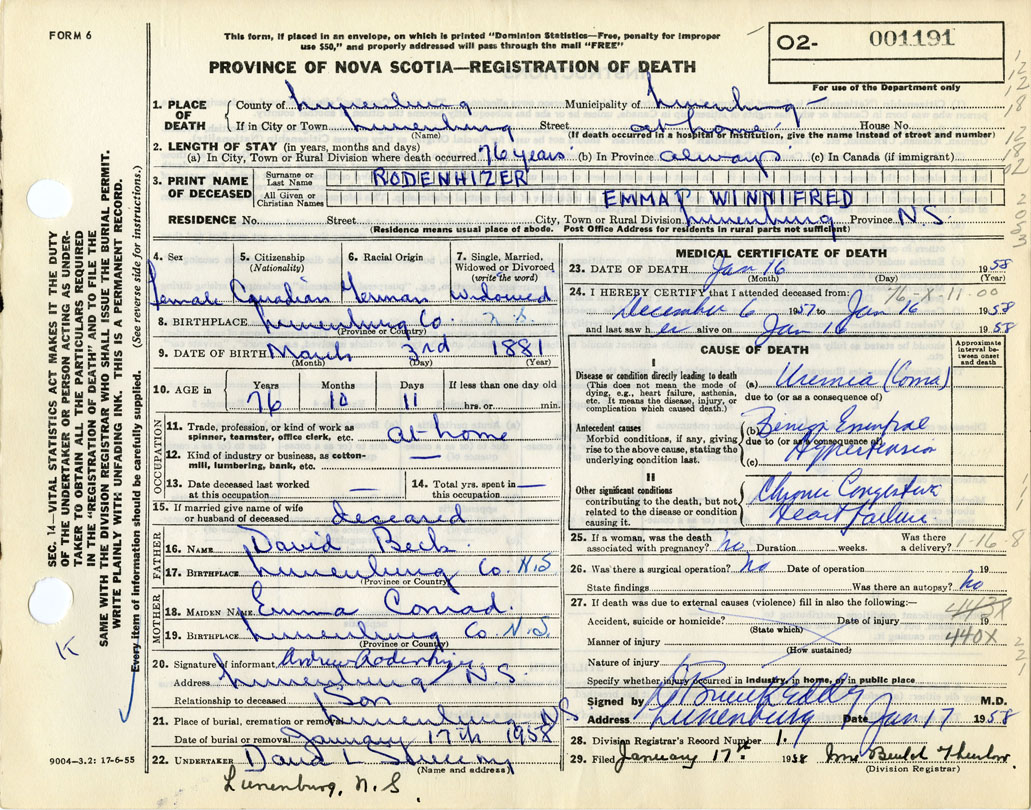 FORM 6
This form, if placed in an envelope, on which is printed "Dominion Statistics—Free, penalty for improper
use $50," and properly addressed will pass through the mail "FREE"
PROVINCE OF NOVA SCOTIA—REGISTRATION OF DEATH
O2- 001191
For use of the Department only
1. PLACE OF DEATH { County of Lunenburg Municipality of Lunenburg
If in City or Town Lunenburg Street at home House No.
(Name) (If death occurred in a hospital or institution, give the name instead of street and number)
2. LENGTH OF STAY (in years, months and days)
(a) In City, Town or Rural Division where death occurred 76 years (b) In Province always (c) In Canada (if immigrant)
3. PRINT NAME OF DECEASED
Surname or Last Name RODENHIZER
All Given or Christian Names EMMA WINNIFRED
RESIDENCE No. Street City, Town or Rural Division Lunenburg Province N.S.
(Residence means usual place of abode. Post Office Address for residents in rural parts not sufficient)
4. Sex 5. Citizenship (Nationality) 6. Racial Origin 7. Single, Married, Widowed or Divorced (write the word)
Female Canadian German Widowed
8. BIRTHPLACE Lunenburg Co. N.S.
(Province or Country)
9. DATE OF BIRTH March 3rd 1881
(Month) (Day) (Year)
10. AGE in Years Months Days If less than one day old
76 10 11 hrs. or min.
OCCUPATION
11. Trade, profession, or kind of work as spinner, teamster, office clerk, etc. at home
12. Kind of industry or business, as cotton-mill, lumbering, bank, etc. —
13. Date deceased last worked at this occupation — 14. Total yrs. spent in this occupation —
15. If married give name of wife or husband of deceased deceased
FATHER
16. NAME David Beck
17. BIRTHPLACE Lunenburg Co. N.S.
(Province or Country)
MOTHER
18. MAIDEN NAME Emma Conrad.
19. BIRTHPLACE Lunenburg Co. N.S.
(Province or Country)
20. Signature of informant Andrew Rodenhizer
Address Lunenburg N.S.
Relationship to deceased Son
21. Place of burial, cremation or removal Lunenburg N.S
Date of burial or removal January 17th 1958
22. UNDERTAKER David L
(Name and address)
Lunenburg, N.S.
MEDICAL CERTIFICATE OF DEATH
23. DATE OF DEATH Jan 16 1958
(Month) (Day) (Year)
24. I HEREBY CERTIFY that I attended deceased from: 76-X-11-00
December 6 1957 to Jan 16 1958
and last saw her alive on Jan 16 1958
CAUSE OF DEATH
Approximate interval between onset and death
I
Disease or condition directly leading to death
(This does not mean the mode of dying, e.g., heart failure, asthenia, etc. It means the disease, injury, or complication which caused death.)
(a) Uremia (Coma)
due to (or as a consequence of)
Antecedent causes
Morbid conditions, if any, giving rise to the above cause, stating the underlying condition last.
(b) Benign Essential
due to (or as a consequence of)
Hypertension
(c)
II
Other significant conditions
contributing to the death, but not related to the disease or condition causing it.
Chronic Congestive
Heart Failure
25. If a woman, was the death associated with pregnancy? no Duration weeks. Was there a delivery? 1-16-8
26. Was there a surgical operation? No Date of operation 19
State findings Was there an autopsy? no
27. If death was due to external causes (violence) fill in also the following:—
Accident, suicide or homicide? Date of injury 19
(State which)
Manner of injury 440X
(How sustained)
Nature of injury
Specify whether injury occurred in industry, in home, or in public place
Signed by M.D.
Address Lunenburg Date Jan 17 1958
28. Division Registrar's Record Number 1.
29. Filed January 17th 1958
(Division Registrar)
SEC. 14—VITAL STATISTICS ACT MAKES IT THE DUTY
OF THE UNDERTAKER OR PERSON ACTING AS UNDER-
TAKER TO OBTAIN ALL THE PARTICULARS REQUIRED
IN THE "REGISTRATION OF DEATH" AND TO FILE THE
SAME WITH THE DIVISION REGISTRAR WHO SHALL ISSUE THE BURIAL PERMIT.
WRITE PLAINLY WITH UNFADING INK. THIS IS A PERMANENT RECORD.
Every item of information should be carefully supplied. (See reverse side for instructions.)
K
9004—3.2: 17-6-55